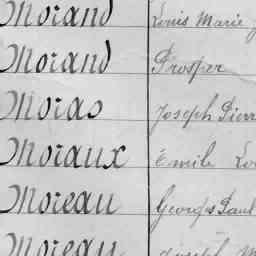 Morand Louis Marie
Morand Prosper
Moras Joseph Pierr
Moraux Emile Lou
Moreau Georges Paul
Moreau Joseph M